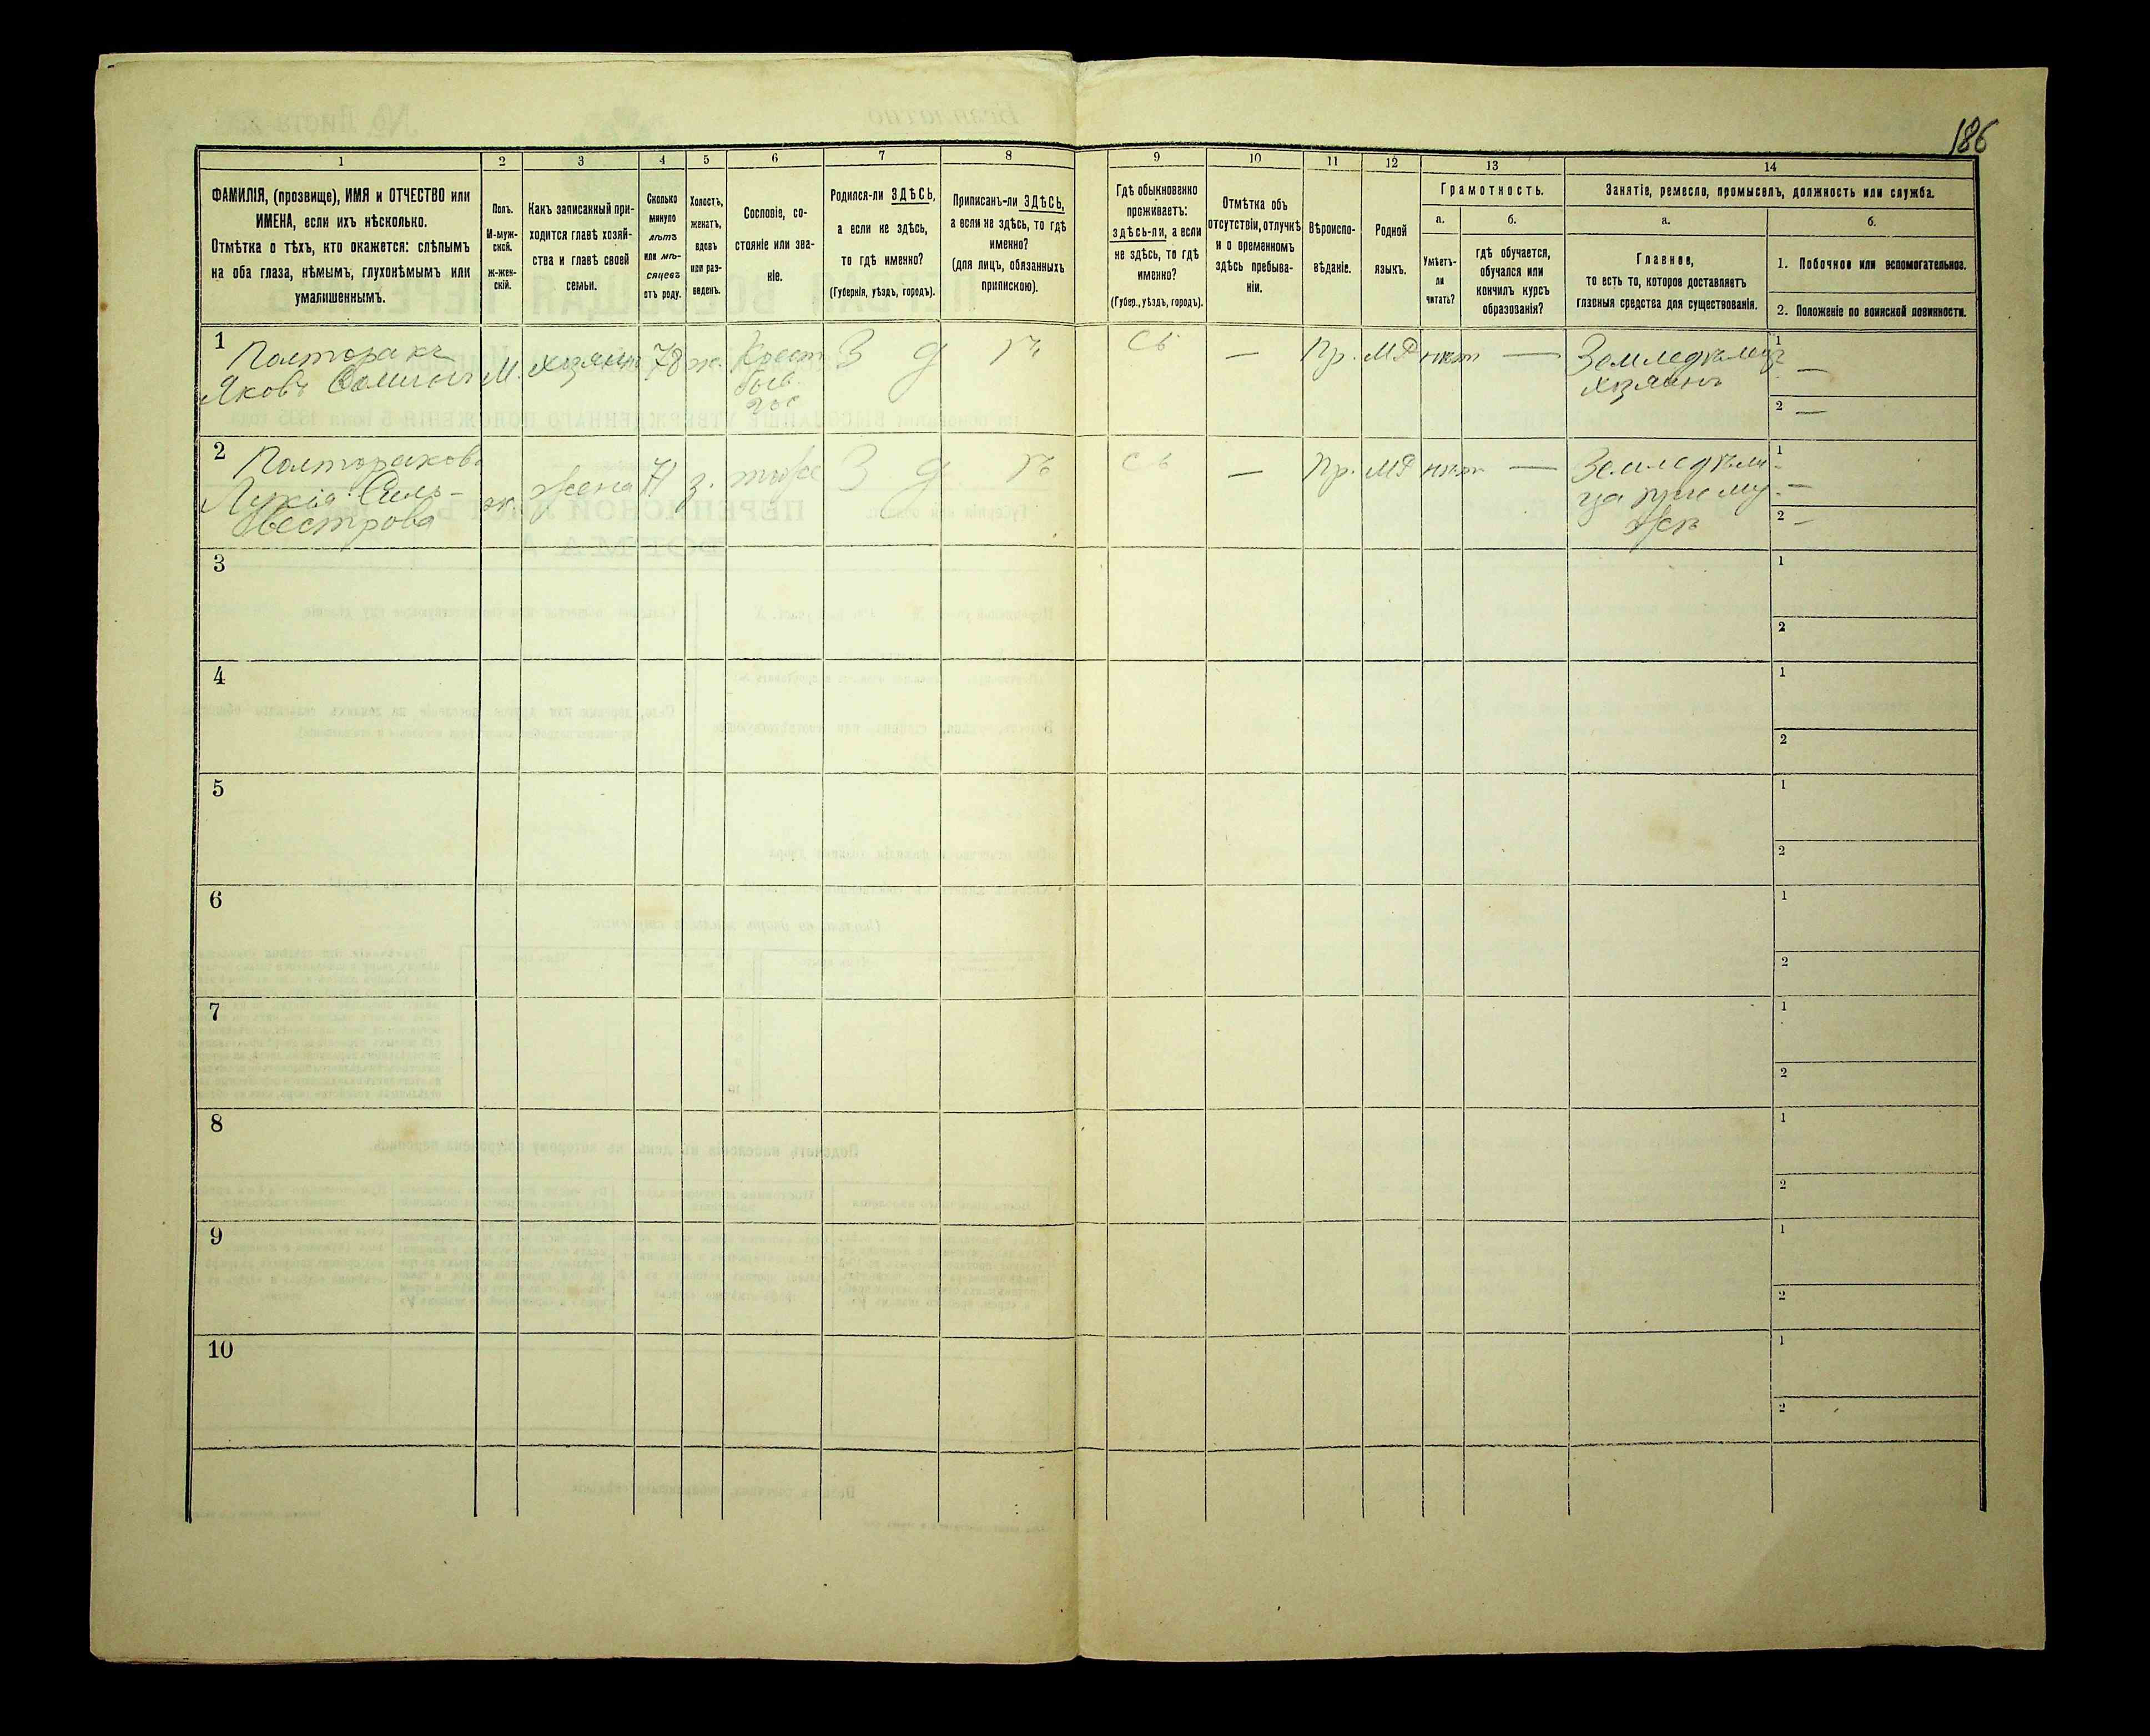 186
1
2
3
4
5
6
7
8
9
10
11
12
13
14
ФАМИЛІЯ, (прозвище), ИМЯ и ОТЧЕСТВО или
ИМЕНА, если ихъ нѣсколько.
Отмѣтка о тѣхъ, кто окажется: слѣпымъ
на оба глаза, нѣмымъ, глухонѣмымъ или
умалишеннымъ.
Полъ.
М-муж-
ской.
ж-жен-
скій.
Какъ записанный при-
ходится главѣ хозяй-
ства и главѣ своей
семьи.
Сколько
минуло
лѣтъ
или мѣ-
сяцевъ
отъ роду.
Холостъ,
женатъ,
вдовъ
или раз-
веденъ.
Сословіе, со-
стояніе или зва-
ніе.
Родился-ли ЗДѢСЬ,
а если не здѣсь,
то гдѣ именно?
(Губернія, уѣздъ, городъ).
Приписанъ-ли ЗДѢСЬ,
а если не здѣсь, то гдѣ
именно?
(для лицъ, обязанныхъ
припискою).
Гдѣ обыкновенно
проживаетъ:
здѣсь-ли, а если
не здѣсь, то гдѣ
именно?
(Губер., уѣздъ, городъ).
Отмѣтка объ
отсутствіи, отлучкѣ
и о временномъ
здѣсь пребыва-
ніи.
Вѣроиспо-
вѣданіе.
Родной
языкъ.
Грамотность.
а.
б.
Умѣетъ-
ли
читать?
гдѣ обучается,
обучался или
кончилъ курсъ
образованія?
Занятіе, ремесло, промыселъ, должность или служба.
а.
б.
Главное,
то есть то, которое доставляетъ
главныя средства для существованія.
1. Побочное или вспомогательное.
2. Положеніе по воинской повинности.
1
Полторакъ
Яковъ
М. хозяинъ 78 ж. Крест.
быв.
З
— Пр. МР нѣтъ —
хозяинъ
1 —
2 —
2
Полторакова
Лукія Силь-
вестрова
ж. жена 71 з. тоже З
— Пр. МР нѣтъ — Земледѣли-
ца при му-
жѣ
1 —
2 —
3
1
2
4
1
2
5
1
2
6
1
2
7
1
2
8
1
2
9
1
2
10
1
2